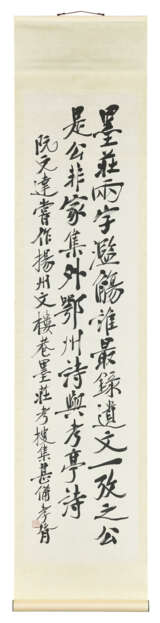 墨莊兩字濫觴誰最錄遺文一攷之公
是公非家集外鄂州詩與考亭詩
阮文達嘗作揚州文樓巷墨莊考搜集甚備 孝胥